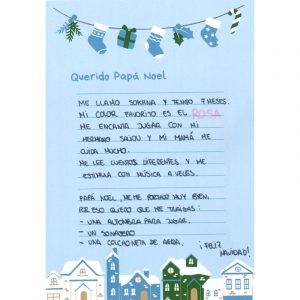 Querido Papá Noel
ME LLAMO SOKHNA Y TENGO 7 MESES.
MI COLOR FAVORITO ES EL ROSA
ME ENCANTA JUGAR CON MI
HERMANO SAIOU Y MI MAMÁ ME
CUIDA MUCHO.
ME LEE CUENTOS DIFERENTES Y ME
ESTIMULA CON MÚSICA A VECES.
PAPÁ NOEL, ME HE PORTADO MUY BIEN,
POR ESO QUIERO QUE ME TRAIGAS:
- UNA ALFOMBRA PARA JUGAR.
- UN SONAJERO
- UNA COLCHONETA DE
¡FELIZ
NAVIDAD!